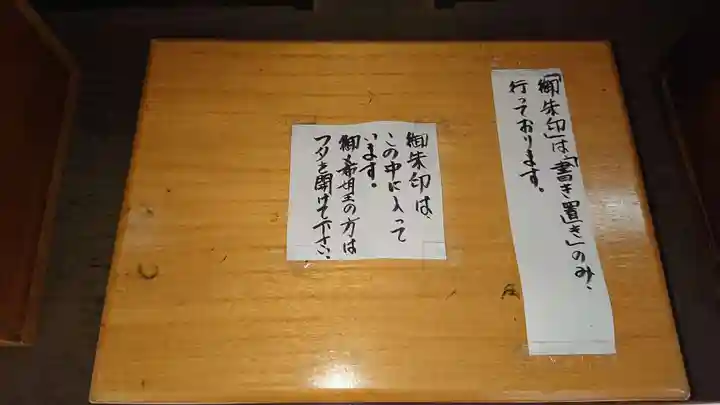 「御朱印」は「書き置き」のみ、
行っております。
御朱印は、
この中に入って
います。
御希望の方は
フタを開けて下さい、